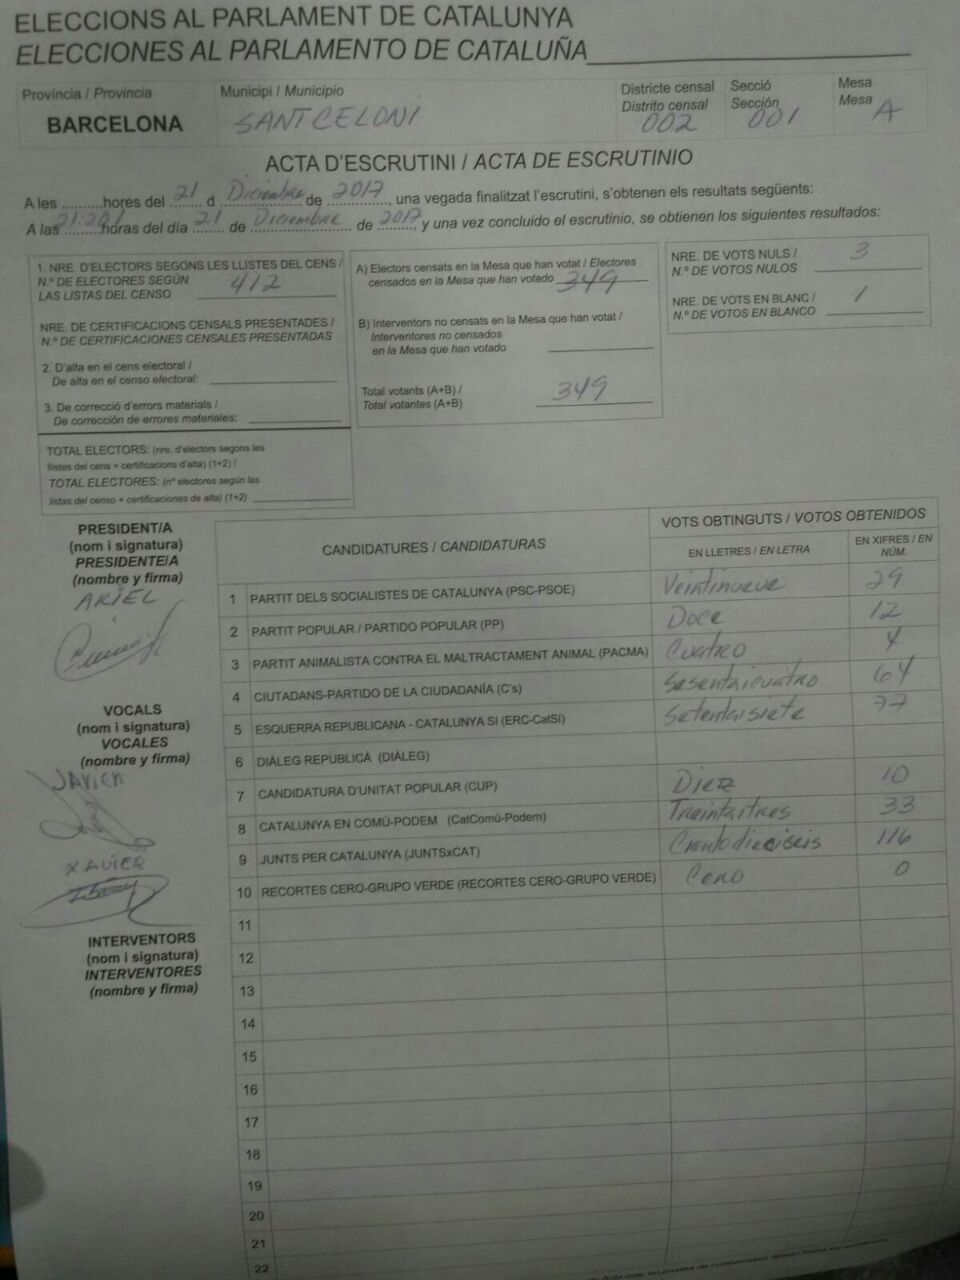 ELECCIONS AL PARLAMENT DE CATALUNYA
ELECCIONES AL PARLAMENTO DE CATALUÑA
Provincia / Provincia
BARCELONA
Municipi / Municipio
SANT CELONI
Districte censal
Distrito censal
002
Secció
Sección
001
Mesa
Mesa A
ACTA D'ESCRUTINI / ACTA DE ESCRUTINIO
A les ..........hores del 21 d Diciembre de 2017, una vegada finalitzat l'escrutini, s'obtenen els resultats següents:
A las 21:20 horas del día 21 de Diciembre de 2017, y una vez concluido el escrutinio, se obtienen los siguientes resultados:
1. NRE. D'ELECTORS SEGONS LES LLISTES DEL CENS /
N.º DE ELECTORES SEGÚN
LAS LISTAS DEL CENSO 412
NRE. DE CERTIFICACIONS CENSALS PRESENTADES /
N.º DE CERTIFICACIONES CENSALES PRESENTADAS
2. D'alta en el cens electoral /
De alta en el censo electoral:
3. De correcció d'errors materials /
De corrección de errores materiales:
TOTAL ELECTORS: (nre. d'electors segons les
llistes del cens + certificacions d'alta) (1+2) /
TOTAL ELECTORES: (nº electores según las
listas del censo + certificaciones de alta) (1+2)
A) Electors censats en la Mesa que han votat / Electores
censados en la Mesa que han votado 349
B) Interventors no censats en la Mesa que han votat /
Interventores no censados
en la Mesa que han votado
Total votants (A+B) /
Total votantes (A+B) 349
NRE. DE VOTS NULS /
N.º DE VOTOS NULOS 3
NRE. DE VOTS EN BLANC /
N.º DE VOTOS EN BLANCO 1
PRESIDENT/A
(nom i signatura)
PRESIDENTE/A
(nombre y firma)
ARIEL
VOCALS
(nom i signatura)
VOCALES
(nombre y firma)
JAVIER
XAVIER
INTERVENTORS
(nom i signatura)
INTERVENTORES
(nombre y firma)
CANDIDATURES / CANDIDATURAS
VOTS OBTINGUTS / VOTOS OBTENIDOS
EN LLETRES / EN LETRA
EN XIFRES / EN NÚM.
1 PARTIT DELS SOCIALISTES DE CATALUNYA (PSC-PSOE) Veintinueve 29
2 PARTIT POPULAR / PARTIDO POPULAR (PP) Doce 12
3 PARTIT ANIMALISTA CONTRA EL MALTRACTAMENT ANIMAL (PACMA) Cuatro 4
4 CIUTADANS-PARTIDO DE LA CIUDADANÍA (C's) Sesentaicuatro 64
5 ESQUERRA REPUBLICANA - CATALUNYA SÍ (ERC-CatSí) Setentaisiete 77
6 DIÀLEG REPUBLICÀ (DIÀLEG)
7 CANDIDATURA D'UNITAT POPULAR (CUP) Diez 10
8 CATALUNYA EN COMÚ-PODEM (CatComú-Podem) Treintaitres 33
9 JUNTS PER CATALUNYA (JUNTSxCAT) Cientodieciseis 116
10 RECORTES CERO-GRUPO VERDE (RECORTES CERO-GRUPO VERDE) Cero 0
11
12
13
14
15
16
17
18
19
20
21
22